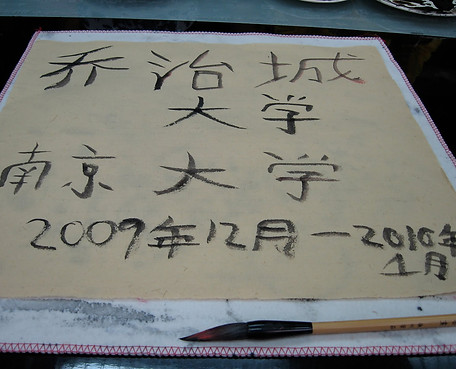 乔治城
大学
南京大学
2009年12月—2010年
1月